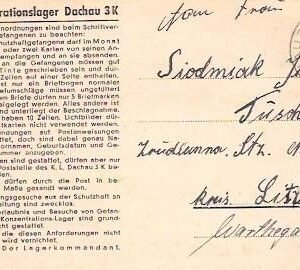 rationslager Dachau 3 K
nordnungen sind beim Schriftver-
efangenen zu beachten:
hutzhaftgefangene darf im Monat
oder zwei Karten von seinen An-
empfangen und an sie absenden.
an die Gefangenen müssen gut
Tinte geschrieben sein und dür-
Zeilen auf einer Seite enthalten.
ist nur ein Briefbogen normaler
efumschläge müssen ungefüttert
em Briefe dürfen nur 5 Briefmarken
eigelegt werden. Alles andere ist
nd unterliegt der Beschlagnahme.
haben 10 Zeilen. Lichtbilder dür-
tkarten nicht verwendet werden.
ungen sind gestattet.
ungen auf Postanweisungen
tattet, doch sind dabei genau Na-
ornamen, Geburtsdatum und Ge-
ummer anzugeben.
en sind gestattet, dürfen aber nur
Poststelle des K. L. Dachau 3 K be-
en.
dürfen durch die Post in be-
Maße gesandt werden.
ssungsgesuche aus der Schutzhaft an
eitung sind zwecklos.
erlaubnis und Besuche von Gefan-
Konzentrations-Lager sind grund-
icht gestattet.
die diesen Anforderungen nicht
wird vernichtet.
Der Lagerkommandant.
Frau
Siodmiak
Tusch
Litz
Warthega